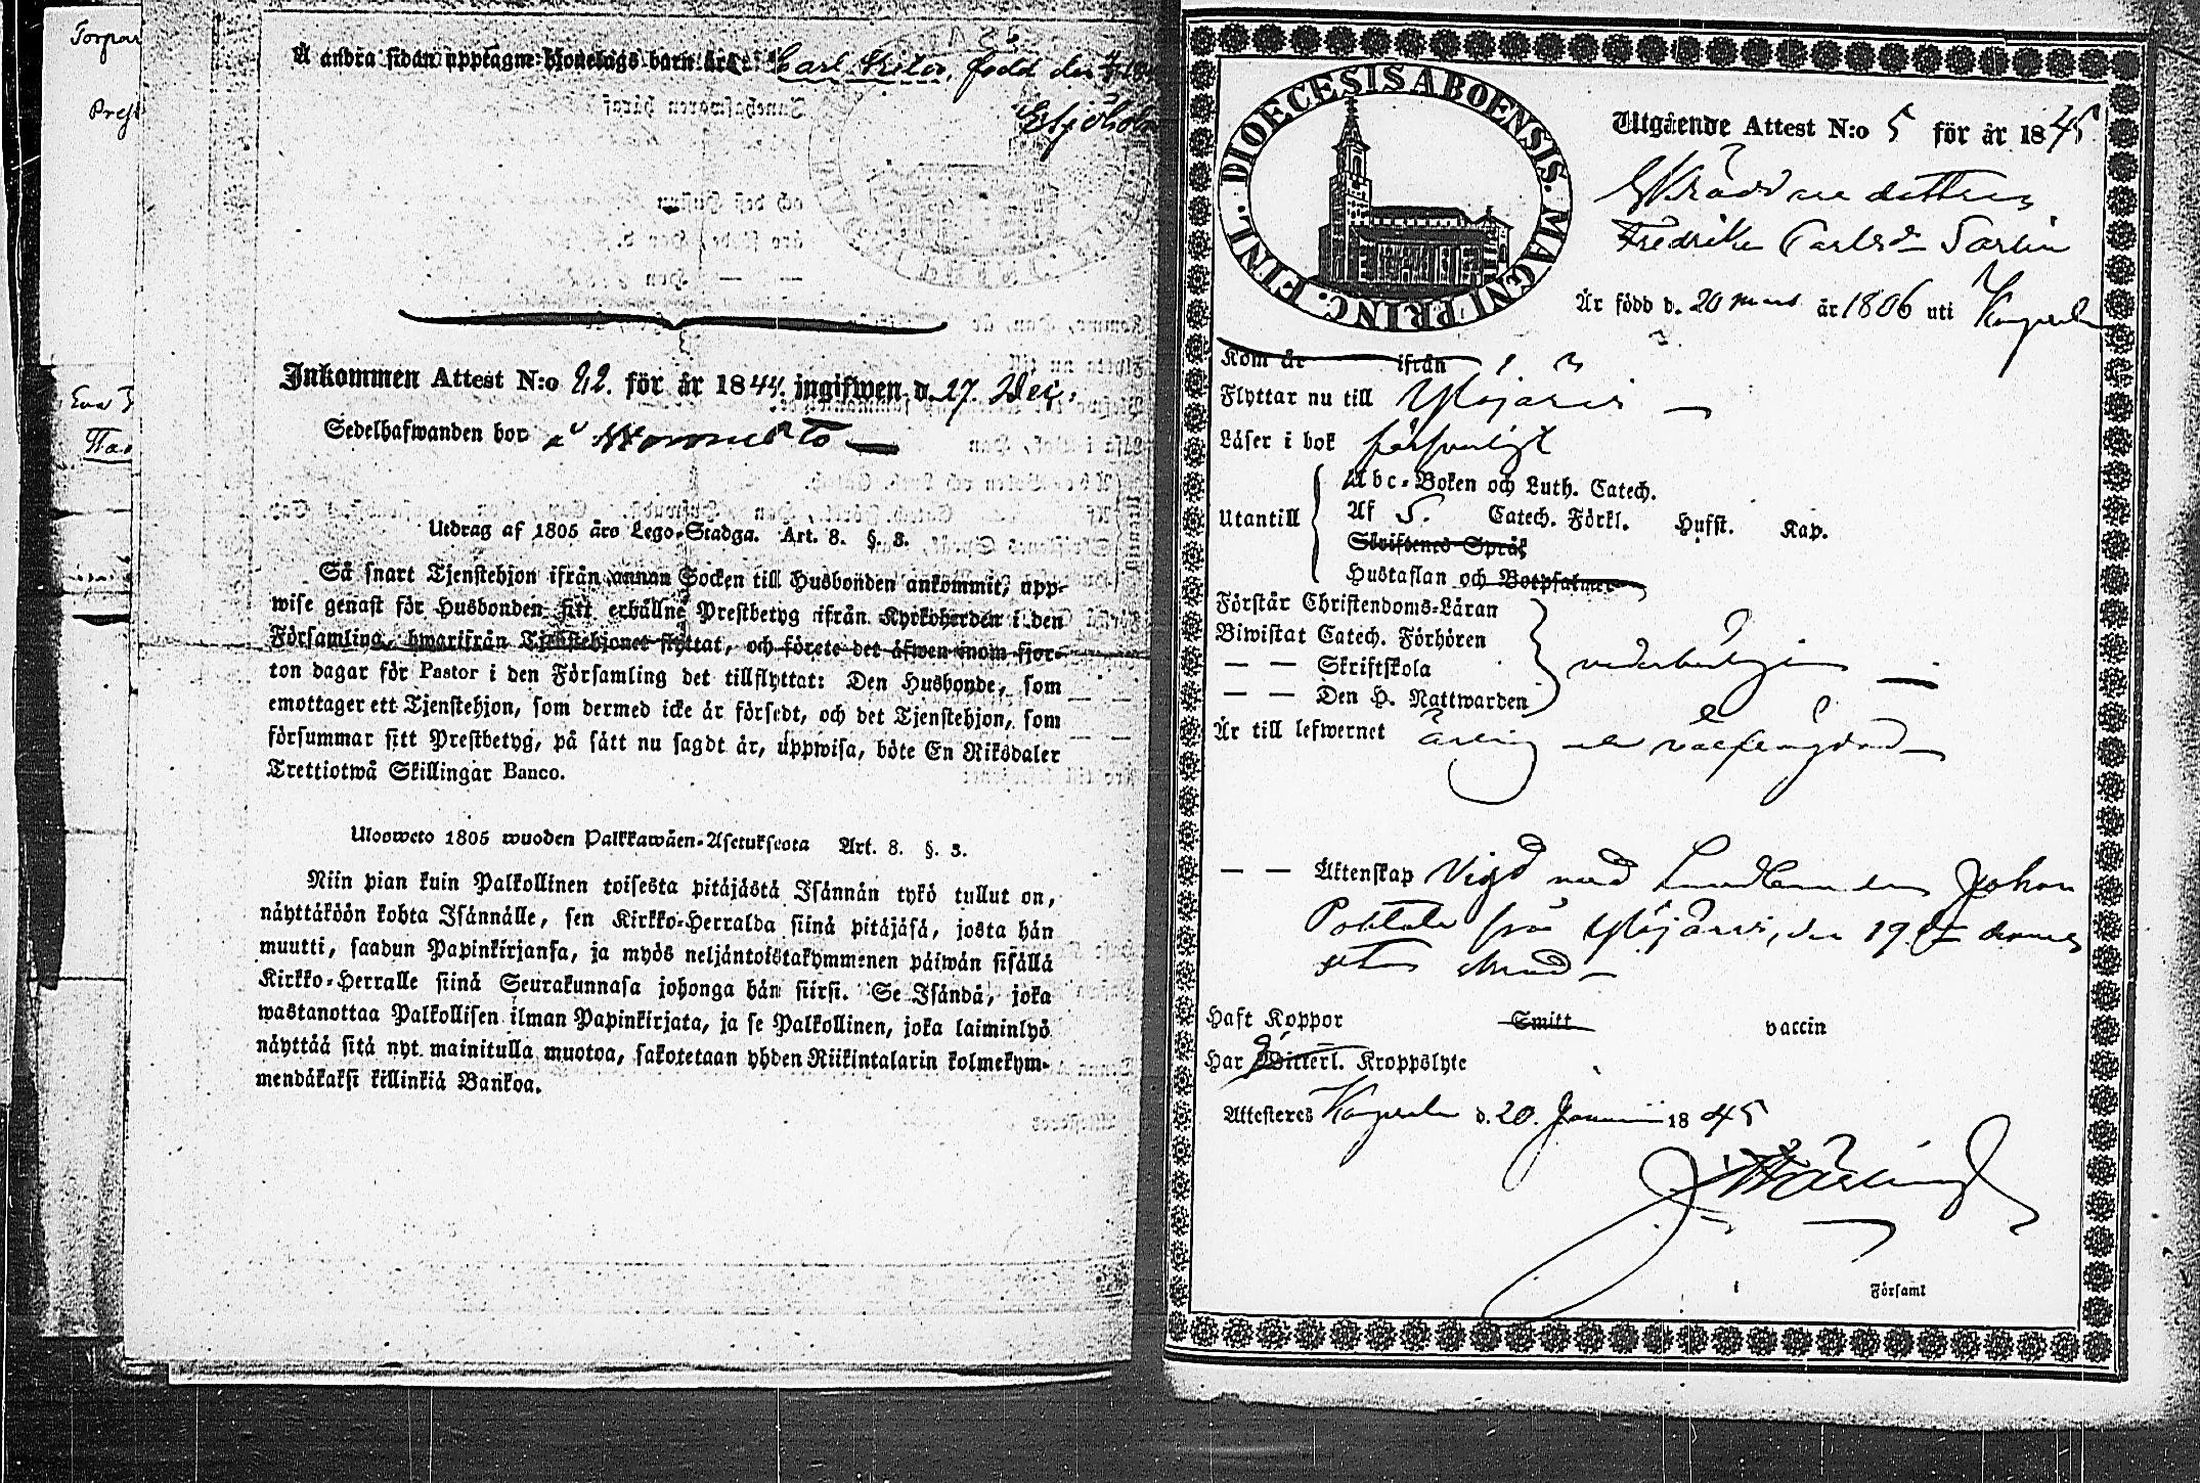 Torpar
Prest
Å andra sidan upptagne Hionelags barn äro: Carl Petter, född den
Inkommen Attest N:o 22. för år 1844. ingifwen d. 27. Dec:
Sedelhafwanden bor i
Utdrag af 1805 års Lego-Stadga. Art. 8. §. 3.
Så snart Tjenstehjon ifrån annan Socken till Husbonden ankommit, upp-
wise genast för Husbonden sitt erhållne Prestbetyg ifrån Kyrkoherden i den
Församling, hwarifrån Tjenstehjonet flyttat, och förete det äfwen inom fjor-
ton dagar för Pastor i den Församling det tillflyttat: Den Husbonde, som
emottager ett Tjenstehjon, som dermed icke är försedt, och det Tjenstehjon, som
försummar sitt Prestbetyg, på sätt nu sagdt är, uppwisa, böte En Riksdaler
Trettiotwå Skillingar Banco.
Ulosweto 1805 wuoden Palkkawäen-Asetuksesta Art. 8. §. 3.
Niin pian kuin Palkollinen toisesta pitäjästä Isännän tykö tullut on,
näyttäköön kohta Isännälle, sen Kirkko-Herralda siinä pitäjäsä, josta hän
muutti, saadun Papinkirjansa, ja myös neljäntoistakymmenen päiwän sisällä
Kirkko-Herralle siinä Seurakunnasa johonga hän siirsi. Se Isändä, joka
wastanottaa Palkollisen ilman Papinkirjata, ja se Palkollinen, joka laiminlyö
näyttää sitä nyt mainitulla muotoa, sakotetaan yhden Riikintalarin kolmekym-
mendäkaksi killinkiä Bankoa.
DIOECESIS ABOENSIS. MAGNI PRINC. FINL.
Utgående Attest N:o 5 för år 1845
Skräddare dottren
Fredrika Carlsdr Sarlin
Är född d. 20 mars år 1806 uti
Kom år ifrån
Flyttar nu till Ylöjärvi
Läser i bok försvarligt
Utantill
Abc-Boken och Luth. Catech.
Af 5. Catech. Förkl. Husst. Kap.
Skriftenes Språk
Hustaflan och Botpsalmer
Förstår Christendoms-Läran
Biwistat Catech. Förhören
— — Skriftskola
— — Den H. Nattwarden
vederbörligen
Är till lefwernet ärlig och välfrägdad
— — Äktenskap Vigd med Landbonden Johan
från Ylöjärvi, den 19 dennes
Haft Koppor Smitt vaccin
Har Witterl. Kroppslyte
Attesteras d. 20. Januari 1845
Församl